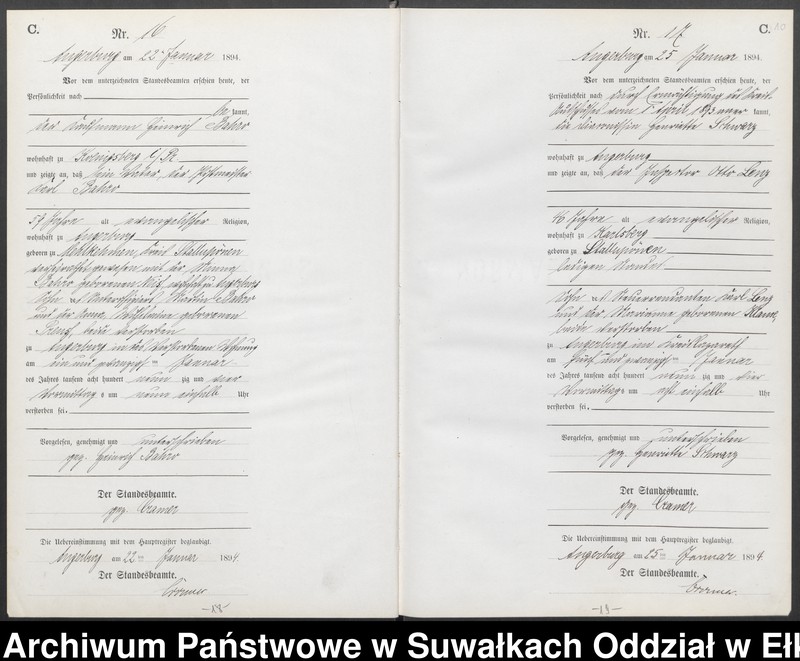 C.
Nr. 16.
Angerburg am 22. Januar 1894.
Vor dem unterzeichneten Standesbeamten erschien heute, der
Persönlichkeit nach
be kannt,
der Kaufmann Heinrich
wohnhaft zu Koenigsberg
und zeigte an, daß sein Vater, der
Carl
57 Jahre alt evangelischer Religion,
wohnhaft zu Angerburg
geboren zu Kreis Stallupönen
verheirathet gewesen mit der
geborenen
Sohn des Martin
und der Wilhelmine geborenen
beide verstorben
zu Angerburg in des Verstorbenen Wohnung
am ein und zwanzigsten Januar
des Jahres tausend acht hundert neun zig und vier
Vormittags um neun einhalb Uhr
verstorben sei.
Vorgelesen, genehmigt und unterschrieben
gez. Heinrich
Der Standesbeamte.
gez. Cramer
Die Uebereinstimmung mit dem Hauptregister beglaubigt.
Angerburg am 22ten Januar 1894.
Der Standesbeamte.
Cramer
-18-
C.
Nr. 17
Angerburg am 25. Januar 1894.
Vor dem unterzeichneten Standesbeamten erschien heute, der
Persönlichkeit nach durch Ermächtigung des Kreis
vom April 1893 kannt,
die Diaconissin Henriette Schwarz
wohnhaft zu Angerburg
und zeigte an, daß der Inspector Otto Lenz
46 Jahre alt evangelischer Religion,
wohnhaft zu Karlsberg
geboren zu Stallupönen
ledigen Standes
Sohn des Steuerrendanten Carl Lenz
und der Marianne geborenen
beide verstorben
zu Angerburg im Kreislazareth
am fünf und zwanzigsten Januar
des Jahres tausend acht hundert neun zig und vier
Vormittags um acht einhalb Uhr
verstorben sei.
Vorgelesen, genehmigt und unterschrieben
gez. Henriette Schwarz
Der Standesbeamte.
gez. Cramer
Die Uebereinstimmung mit dem Hauptregister beglaubigt.
Angerburg am 25ten Januar 1894.
Der Standesbeamte.
Cramer.
-19-
Archiwum Państwowe w Suwałkach Oddział w Ełk